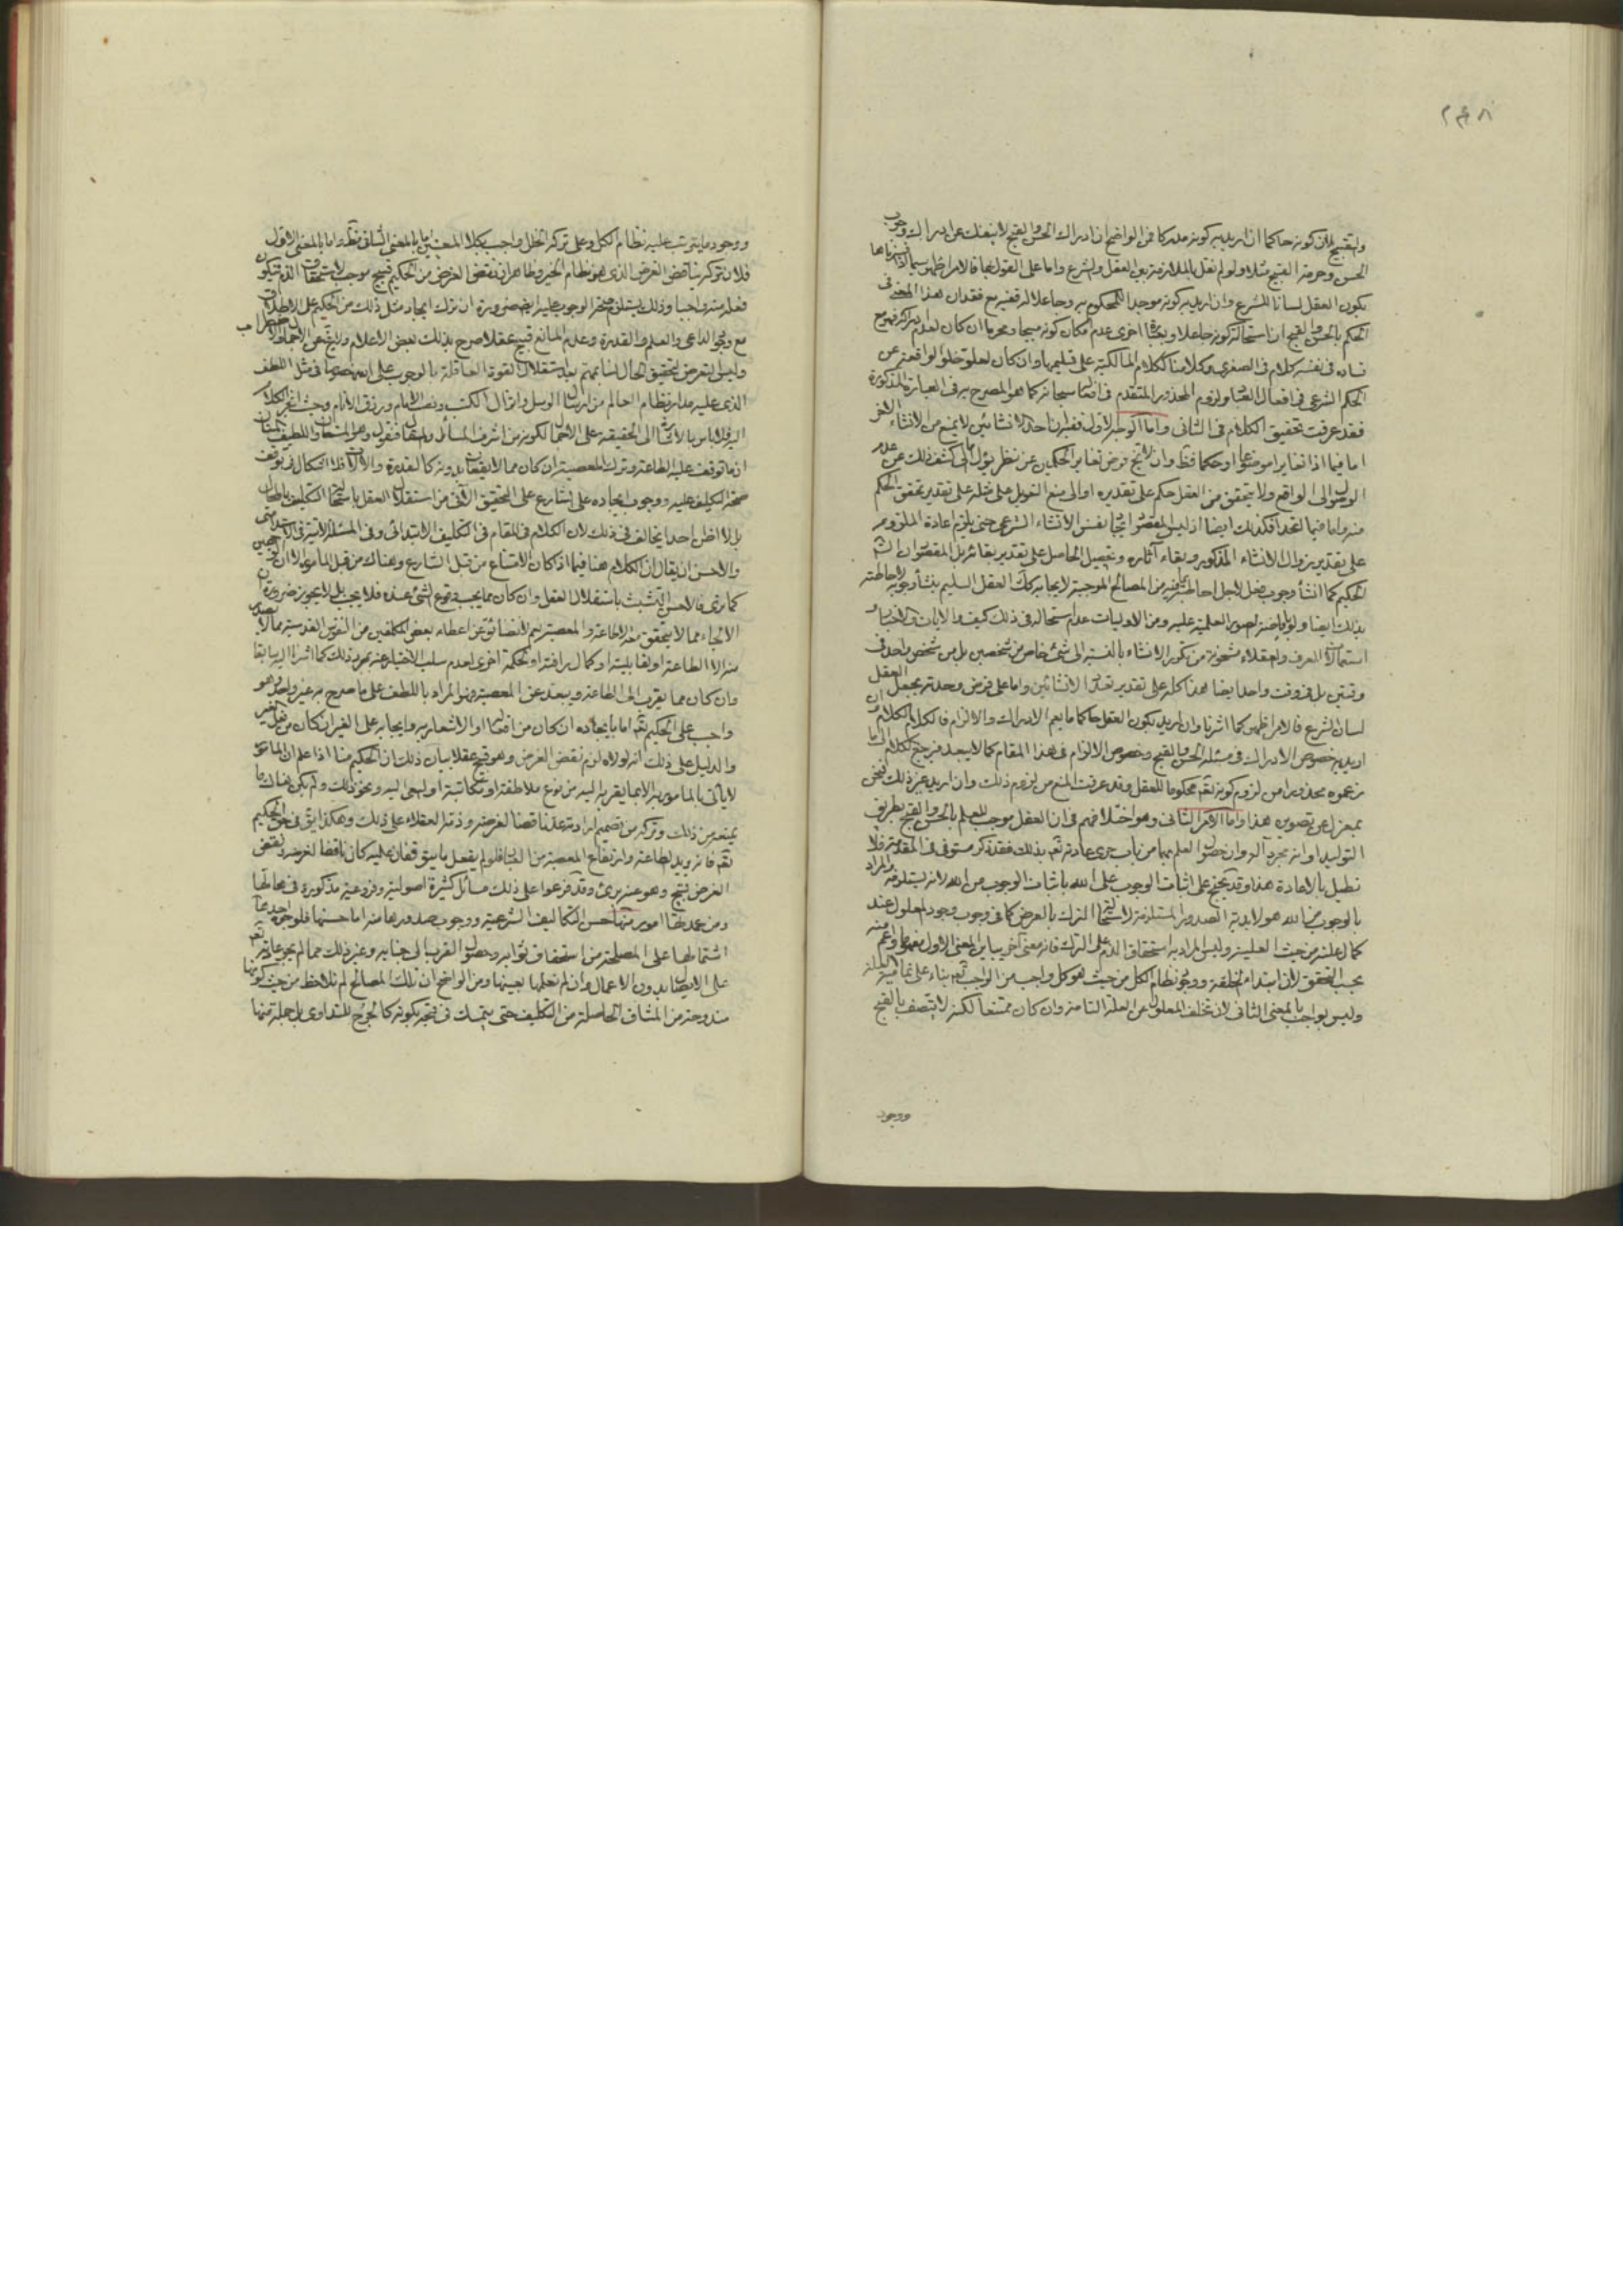 ٢٤٨
والتقبيح لان كونه حاكما ان اريد به كونه مدركا فمن الواضح ان ادراك الحسن والقبح لا ينفك عن ادراك وجوب
الحسن وحرمة القبيح مثلا ولو لم نقل بالملازمة بين العقل والشرع واما على القول بها فالامر اظهر سيما اذا فسرناها
بكون العقل لسانا للشرع وان اريد به كونه موجدا للمحكوم به وجاعلا له ففيه مع فقدان هذا المعنى في
الحكم بالحسن والقبح ان استحالة كونه جاعلا وبعبارة اخرى عدم امكان كونه مبيحا ومحرما ان كان لعدم ادراكه فهو مع
فساده في نفسه كلام في الصغرى وكلامنا ككلام المالكية على تسليمها وان كان لعلو تخلو الواقعة عن
الحكم الشرعي في افعال العباد ولزوم المحذور المتقدم في افعاله سبحانه كما هو المصرح به في العبارة المذكورة
فقد عرفت تحقيق الكلام في الثاني واما الوجه الاول ففيه ان احد الانشائين لا يمنع من الانشاء الاخر
اما فيما اذا تغايرا موضوعا او حكما فظ وان اتج فرض تغاير الحكمين عن نظر يؤل الى كشف ذلك عن عدم
الوصول الى الواقع ولا يتحقق من العقل حكم على تقديره او الى منع التعويل على مثله على تقدير تحقق الحكم
منه واما فيما اتحدا فكذلك ايضا اذ ليس المقصود ايجاد نفس الانشاء الشرعي حتى يلزم اعادة المعدوم
على تقدير زوال الانشاء المذكور وبقاء آثاره وتحصيل الحاصل على تقدير بقائه بل المقصود ان الشارع
الحكيم كما انشأ وجوب فعل لاجل احاطته بما فيه من المصالح الموجبة لايجابه كك العقل السليم ينشأ وجوبه لاحاطته
بذلك ايضا ولو بافاضة الصور العلمية عليه ومن الاوليات عدم استحالة في ذلك كيف والايات والاخبار
استعمالات العرف والعقلاء مشحونة من تكرر الانشاء بالنسبة الى شيء خاص من شخصين بل من شخص واحد في
وقتين بل في وقت واحد ايضا هذا كله على تقدير تعدد الانشائين واما على فرض وحدته بجعل العقل
لسان الشرع فالامر اظهر كما اشرنا وان اريد بكون العقل حاكما ما يعم الادراك والالزام فالكلام الكلام وان
اريد به خصوص الادراك في مسئلة الحسن والقبح وخصوص الالزام في هذا المقام كما لا يبعد فيرجع الكلام الى ما
زعموه محذورا من لزوم كونه تعالى محكوما للعقل وقد عرفت المنع من لزوم ذلك وان اريد غير ذلك فنحن
بمعزل عن تصويره هذا واما الامر الثاني وهو اختلافهم في ان العقل موجب للعلم بالحسن والقبح بطريق
التوليد او انه مجرد آلة وان حصول العلم بهما من باب جرى عادته تع بذلك فقد ذكر مستوفى في المقدمة فلا
نطيل بالاعادة هذا وقد يحتج على اثبات الوجوب على الله باثبات الوجوب من الله لانه يستلزمه والمراد
بالوجوب من الله هو لابدية الصدور المستلزمة لاستحالة الترك بالعرض كما في وجوب وجود المعلول عند
كمال علته من حيث العلية وليس المراد به استحقاق الذم على الترك فانه معنى آخر يباين المعنى الاول مفهوما واعم منه
بحسب التحقق لان ابتداء الخلقة ووجود نظام الكل من حيث هو كل واجب من الواجب تع بناء على تمامية العلة
وليس بواجب بالمعنى الثاني لان تخلف المعلول عن العلة التامة وان كان ممتنعا لكنه لا يتصف بالقبح
ووجود
ووجود ما يترتب عليه نظام الكل وعلى تركه الخلل واجب بكلا المعنيين اما بالمعنى الثاني فظ واما بالمعنى الاول
فلان تركه يناقض الغرض الذي هو نظام الخير وظاهر ان نقض الغرض من الحكيم قبيح موجب لاستحقاق الذم فيكون
فعله منه واجبا وذلك يستلزم صحة الوجوب عليه ايضا ضرورة ان ترك ايجاد مثل ذلك من الحكيم على الاطلاق
مع وجود الداعي والعلم والقدرة وعدم المانع قبيح عقلا صرح بذلك بعض الاعلام
وليس التعرض لتحقيق الحال لنا بمهم بعد استقلال القوة العاقلة بالوجوب على الله خصوصا في مثل اللطف
الذي عليه مدار نظام العالم من ارسال الرسل وانزال الكتب ونصب الامام ورزق الانام وحيث انجر الكلام
اليه فلا باس بالاشارة الى الحقيقة على الاجمال لكونه من اشرف المسائل
ان ما توقف عليه الطاعة وترك المعصية ان كان مما لا يقعان بدونه كالقدرة والآلة فلا اشكال في توقف
صحة التكليف عليه ووجوب ايجاده على الشارع على التحقيق الآتي من استقلال العقل باستحالة التكليف بالمحال
بل لا اظن احدا يخالف في ذلك لان الكلام في المقام في التكليف الابتدائي وفي المسئلة الآتية في
والاحسن ان يقال ان الكلام هنا فيما اذا كان الامتناع من قبل الشارع وهناك من قبل المامور
كما ترى فالاحسن التشبث باستقلال العقل وان كان مما يجب وقوع الشيء عنده فلا يجب بل لا يجوز ضرورة ان
الالجاء مما لا يتحقق معه الاطاعة والمعصية نعم لا نضائق عن اعطاء بعض المكلفين من النفوس القدسية ما لا يصدر
منه الا الطاعة او لقابليته او كمال رافته او لحكمة اخرى لعدم سلب الاختيار عنه بمجرد ذلك كما اشرنا اليه سابقا
وان كان مما يقرب الى الطاعة ويبعد عن المعصية وهو المراد باللطف على ما صرح به غير واحد فهو
واجب على الحكيم تع اما بايجاده ان كان من افعاله او الاشعار به وايجابه على الغير ان كان من فعل الغير
والدليل على ذلك انه لولاه لزم نقض الغرض وهو قبيح عقلا بيان ذلك ان الحكيم منا اذا علم ان المامور
لا ياتي بالمامور به الا بما يقربه اليه من نوع ملاطفة او مكاتبة او السعي اليه ونحو ذلك ولم يكن هناك ما
يمنعه من ذلك وتركه مع تصميم ارادته عد ناقضا لغرضه وذمه العقلاء على ذلك وهكذا يق في حق الحكيم
تع فانه يريد الطاعة وارتفاع المعصية من العباد فلو لم يفعل ما يتوقفان عليه كان ناقضا لغرضه ونقض
الغرض قبيح وهو عنه برئ وقد فرعوا على ذلك مسائل كثيرة اصولية وفروعية مذكورة في محالها
ومن عمدتها امور منها حسن التكاليف الشرعية ووجوب صدورها منه اما حسنها فلوجوه احدها
اشتمالها على المصلحة من استحقاق ثوابه وحصول القرب الى جنابه وغير ذلك مما لم يجر عادته تع
على الايصال بدون الاعمال وان لم نعلمها بعينها ومن الواضح ان تلك المصالح لم تلاحظ من حيث كونها
مندوحة من المشاق الحاصلة من التكليف حتى يتمسك في قبحه بكونه كالجرح للتداوى بل جملة منها